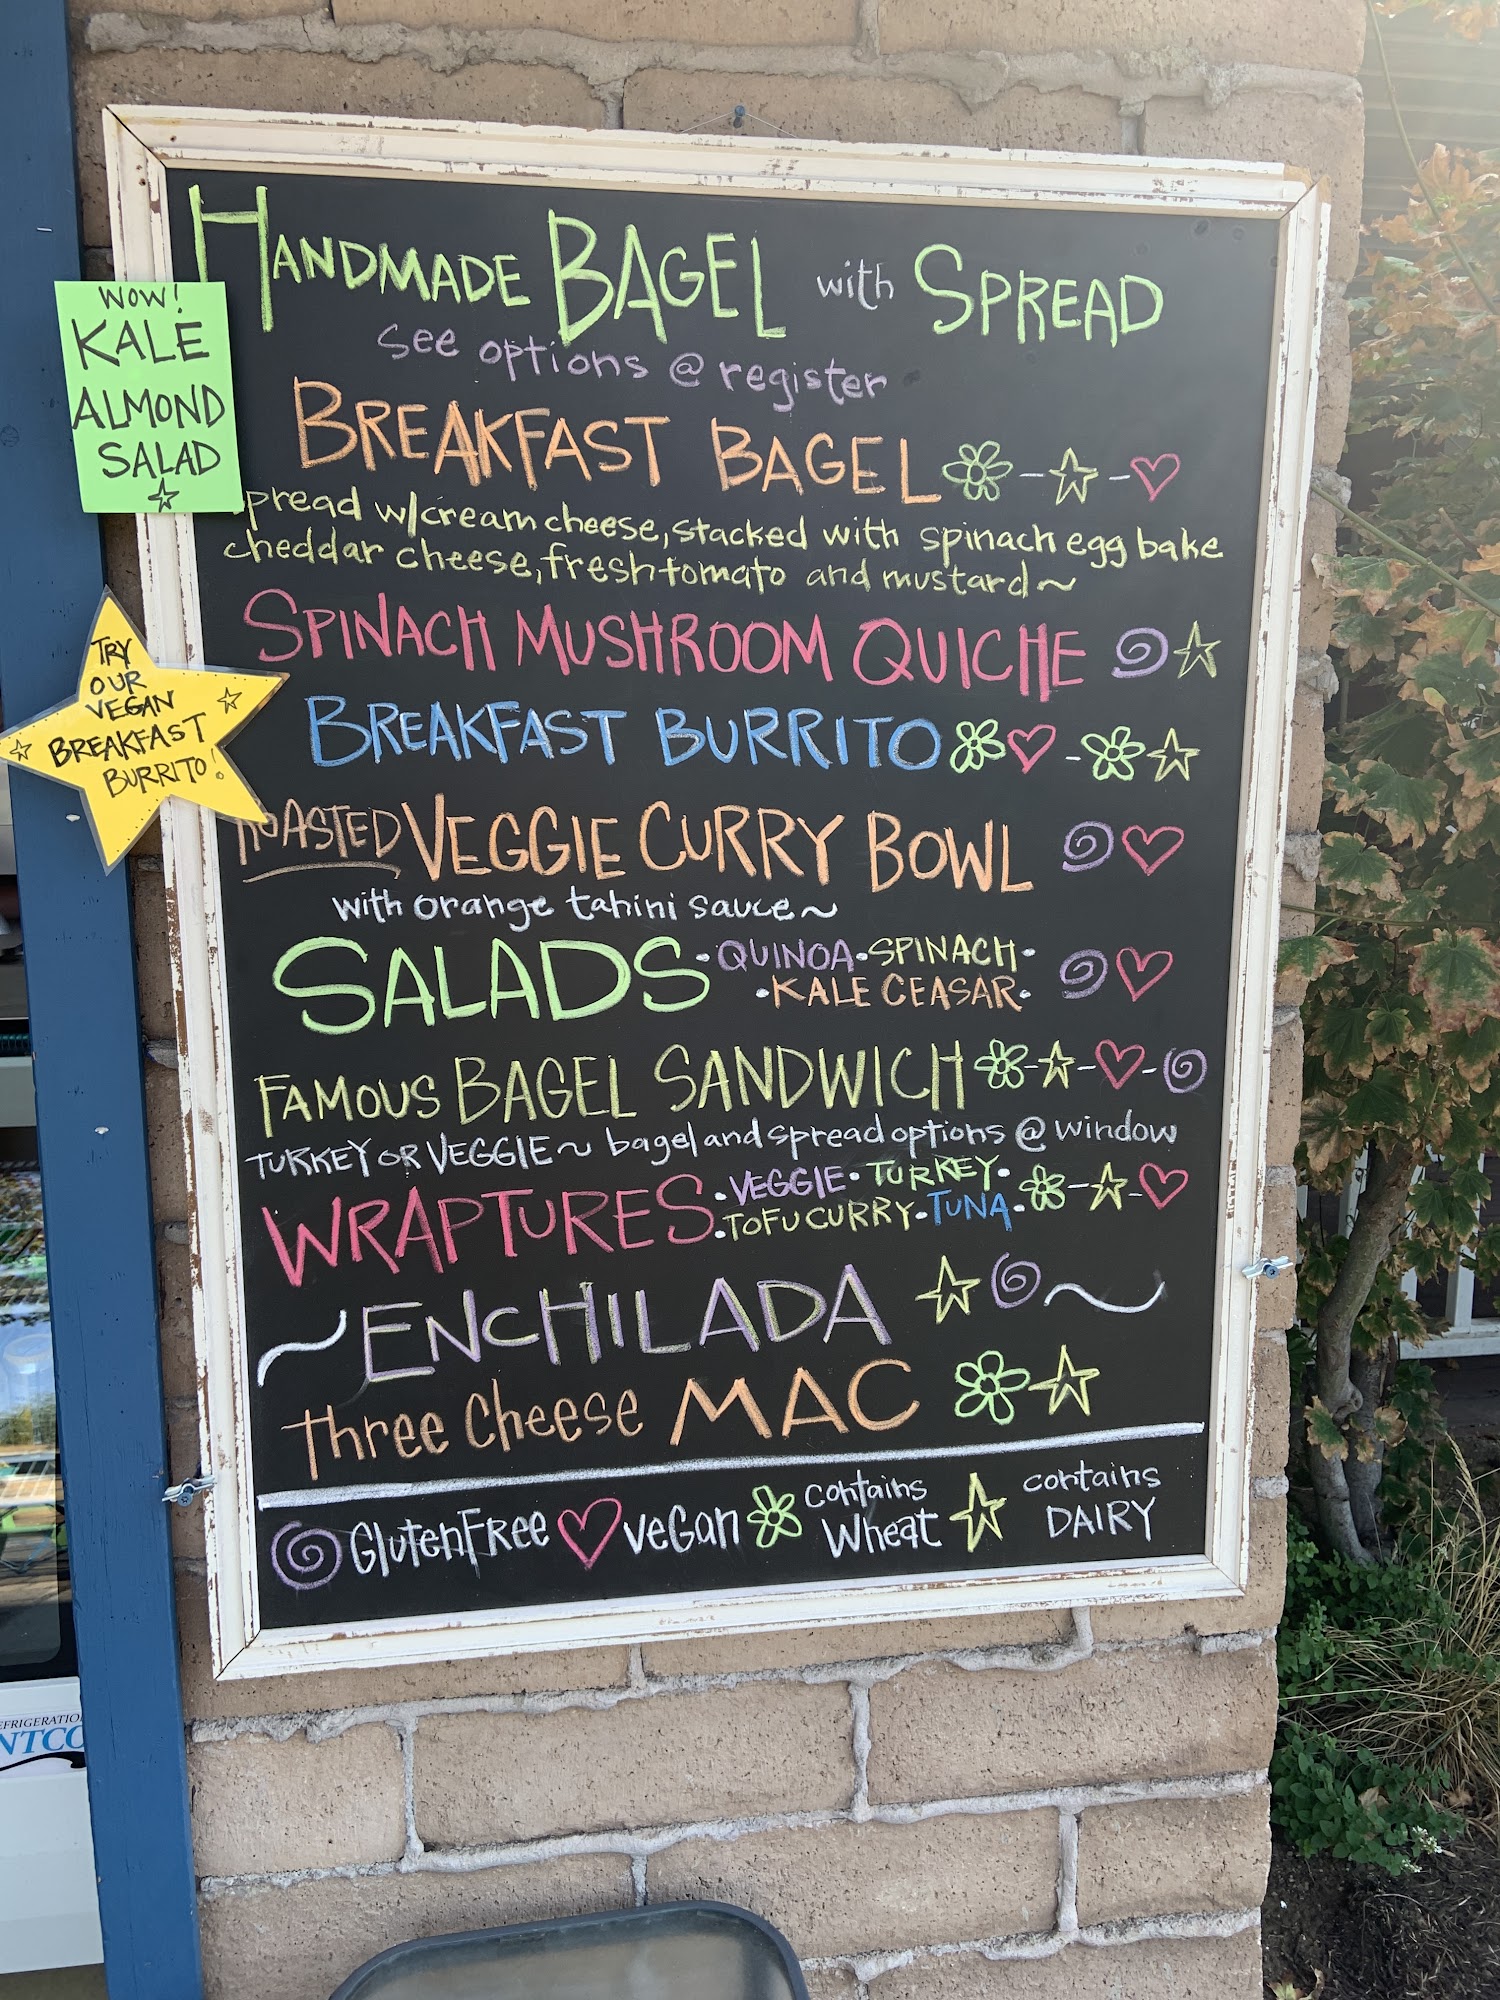 HANDMADE BAGEL with SPREAD
see options @ register
WOW!
KALE
ALMOND
SALAD
BREAKFAST BAGEL
spread w/cream cheese, stacked with spinach egg bake
cheddar cheese, fresh tomato and mustard~
SPINACH MUSHROOM QUICHE
TRY
OUR
VEGAN
BREAKFAST
BURRITO!
BREAKFAST BURRITO
ROASTED VEGGIE CURRY BOWL
with orange tahini sauce~
SALADS • QUINOA • SPINACH •
• KALE CEASAR •
FAMOUS BAGEL SANDWICH
TURKEY OR VEGGIE~ bagel and spread options @ window
WRAPTURES • VEGGIE • TURKEY •
• TOFU CURRY • TUNA •
~ENCHILADA ~
three Cheese MAC
GlutenFree veGan contains Wheat contains DAIRY